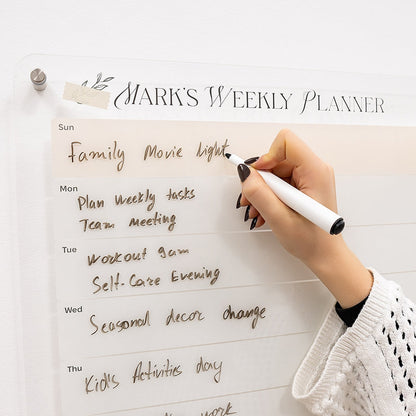 Mark's Weekly Planner
Sun
Family Movie light
Mon
Plan Weekly tasks
Team Meeting
Tue
Workout 9am
Self-Care Evening
Wed
Seasonal decor change
Thu
Kid's Activities day
work